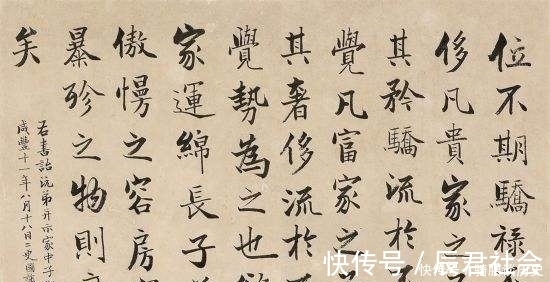 位不期驕祿
侈凡貴家之子
其矜驕流於
覺凡富家之
其奢侈流於
覺勢為之也欲
家運綿長子
傲慢之容房
暴殄之物則
矣
右書詒沅弟并示家中子
咸豐十一年八月十八日二更國藩
快传号/辰君社会